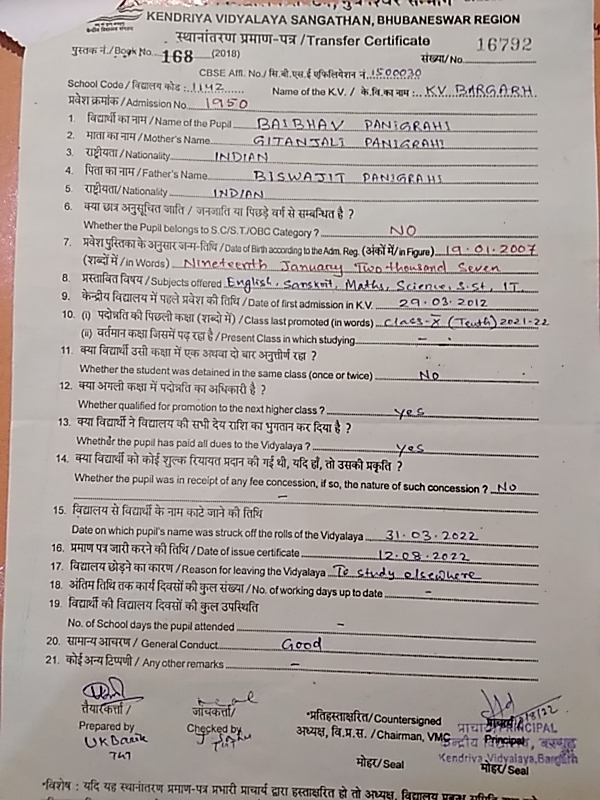 KENDRIYA VIDYALAYA SANGATHAN, BHUBANESWAR REGION
स्थानांतरण प्रमाण-पत्र / Transfer Certificate
पुस्तक नं./Book No. 168 (2018) संख्या/No. 16792
CBSE Aff. No./सि.बी.एस.ई एफिलियेशन नं. 1500030
School Code / विद्यालय कोड : 1142 Name of the K.V. / के.वि.का नाम : KV BARGARH
प्रवेश क्रमांक / Admission No. 1950
1. विद्यार्थी का नाम / Name of the Pupil BAIBHAV PANIGRAHI
2. माता का नाम / Mother's Name GITANJALI PANIGRAHI
3. राष्ट्रीयता / Nationality INDIAN
4. पिता का नाम / Father's Name BISWAJIT PANIGRAHI
5. राष्ट्रीयता / Nationality INDIAN
6. क्या छात्र अनुसूचित जाति / जनजाति या पिछड़े वर्ग से सम्बन्धित है ?
Whether the Pupil belongs to S.C/S.T./OBC Category ? NO
7. प्रवेश पुस्तिका के अनुसार जन्म-तिथि / Date of Birth according to the Adm. Reg. (अंकों में/in Figure) 19.01.2007
(शब्दों में / in Words) Nineteenth January Two thousand Seven
8. प्रस्तावित विषय / Subjects offered English, Sanskrit, Maths, Science, S.St, IT
9. केन्द्रीय विद्यालय में पहले प्रवेश की तिथि / Date of first admission in K.V. 29.03.2012
10. (i) पदोन्नति की पिछली कक्षा (शब्दो में) / Class last promoted (in words) Class-X (Tenth) 2021-22
(ii) वर्तमान कक्षा जिसमें पढ़ रहा है / Present Class in which studying -
11. क्या विद्यार्थी उसी कक्षा में एक अथवा दो बार अनुत्तीर्ण रहा ?
Whether the student was detained in the same class (once or twice) No
12. क्या अगली कक्षा में पदोन्नति का अधिकारी है ?
Whether qualified for promotion to the next higher class ? yes
13. क्या विद्यार्थी ने विद्यालय की सभी देय राशि का भुगतान कर दिया है ?
Whether the pupil has paid all dues to the Vidyalaya ? yes
14. क्या विद्यार्थी को कोई शुल्क रियायत प्रदान की गई थी, यदि हाँ, तो उसकी प्रकृति ?
Whether the pupil was in receipt of any fee concession, if so, the nature of such concession ? No
-
15. विद्यालय से विद्यार्थी के नाम काटे जाने की तिथि
Date on which pupil's name was struck off the rolls of the Vidyalaya 31.03.2022
16. प्रमाण पत्र जारी करने की तिथि / Date of issue certificate 12.08.2022
17. विद्यालय छोड़ने का कारण / Reason for leaving the Vidyalaya To study elsewhere
18. अंतिम तिथि तक कार्य दिवसों की कुल संख्या / No. of working days up to date -
19. विद्यार्थी की विद्यालय दिवसों की कुल उपस्थिति
No. of School days the pupil attended -
20. सामान्य आचरण / General Conduct Good
21. कोई अन्य टिप्पणी / Any other remarks -
तैयारकर्त्ता / जांचकर्त्ता / *प्रतिहस्ताक्षरित / Countersigned
Prepared by Checked by अध्यक्ष, वि.प्र.स. / Chairman, VMC Principal
PRINCIPAL
Kendriya Vidyalaya, Bargarh
मोहर/Seal मोहर/Seal
*विशेष : यदि यह स्थानान्तरण प्रमाण-पत्र प्रभारी प्राचार्य द्वारा हस्ताक्षरित हो तो अध्यक्ष, विद्यालय